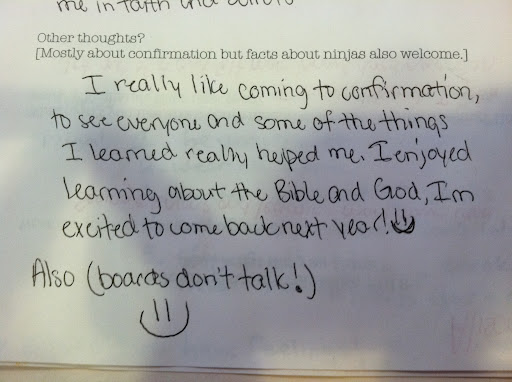 me in faith and
Other thoughts?
[Mostly about confirmation but facts about ninjas also welcome.]
I really like coming to confirmation,
to see everyone and some of the things
I learned really helped me. I enjoyed
learning about the Bible and God, I'm
excited to come back next year!
Also (boards don't talk!)